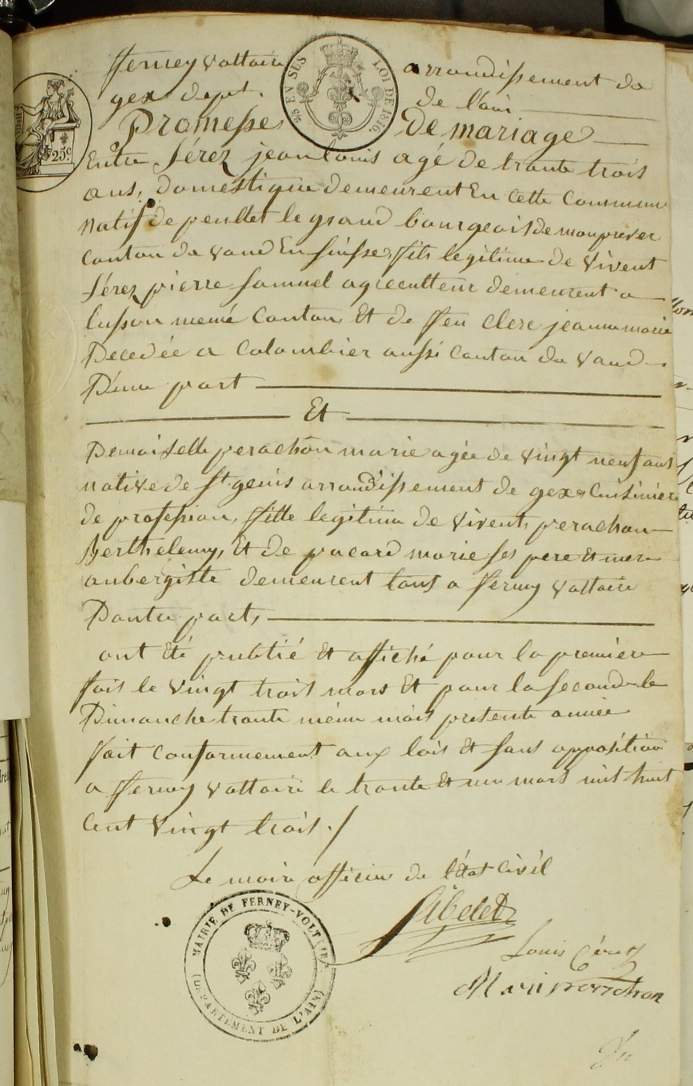 ferney voltaire arrondissement de
gex depet. de l'ain
TIMB EN SUS LOI DE 1816
25c
Promesse de mariage
Entre Sérez jean louis agé de trante trois
ans, Domestique demeurent En cette Commune
natif de penllet le grand bourgeois de
Canton de vaud En suisse, fils legitime de vivent
Sérez pierre Samuel agreculteur demeurent a
lusson memé Canton Et de feu clerc jeanne marie
Decedée a Colombier aussi Canton du Vaud
D'une part
Et
Demaiselle perachon marie agée de vingt neuf ans
native de St genis arrondissement de gex Cuisiniere
de profession, fille legitime de vivent, perachon
Berthelemy, Et de pacard marie ses pere Et mere
aubergiste demeurent tous a ferney voltaire
Dautre part,
ont été publié Et affiché pour la premiére
fois le vingt trois mars Et pour la seconde le
Dimanche trante méme mois presente année
fait conformement aux lois Et sans opposition
a ferney voltaire le trante Et un mars mil huit
Cent vingt trois ./
Le maire officier de l'état Civil
Louis Cérez
Mari perrchon
MAIRIE DE FERNEY-VOLTAIRE
(DEPARTEMENT DE L'AIN)